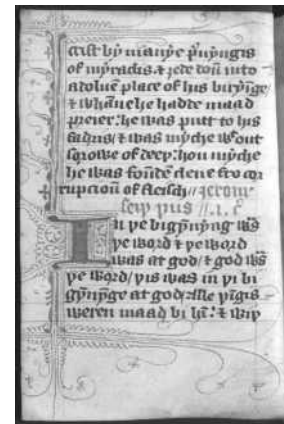 crist bi manye pͥnyngis
of myraclis. ⁊ ȝede doun into
a doluen place of his biryinge
⁊ whanne he hadde maad
preier: he was putt to his
fadris/ ⁊ was myche wiþout
sorowe of deeþ: hou myche
he was founde clene fro cor
rupcioun of fleisch//
seiþ þus //.i. c̊
In þe bigynnyng was
þe word ⁊ þe word
was at god/ ⁊ god was
þe word/ þis was in þe bi
gynnynge at god: alle þingis
weren maad bi him: ⁊ wiþ